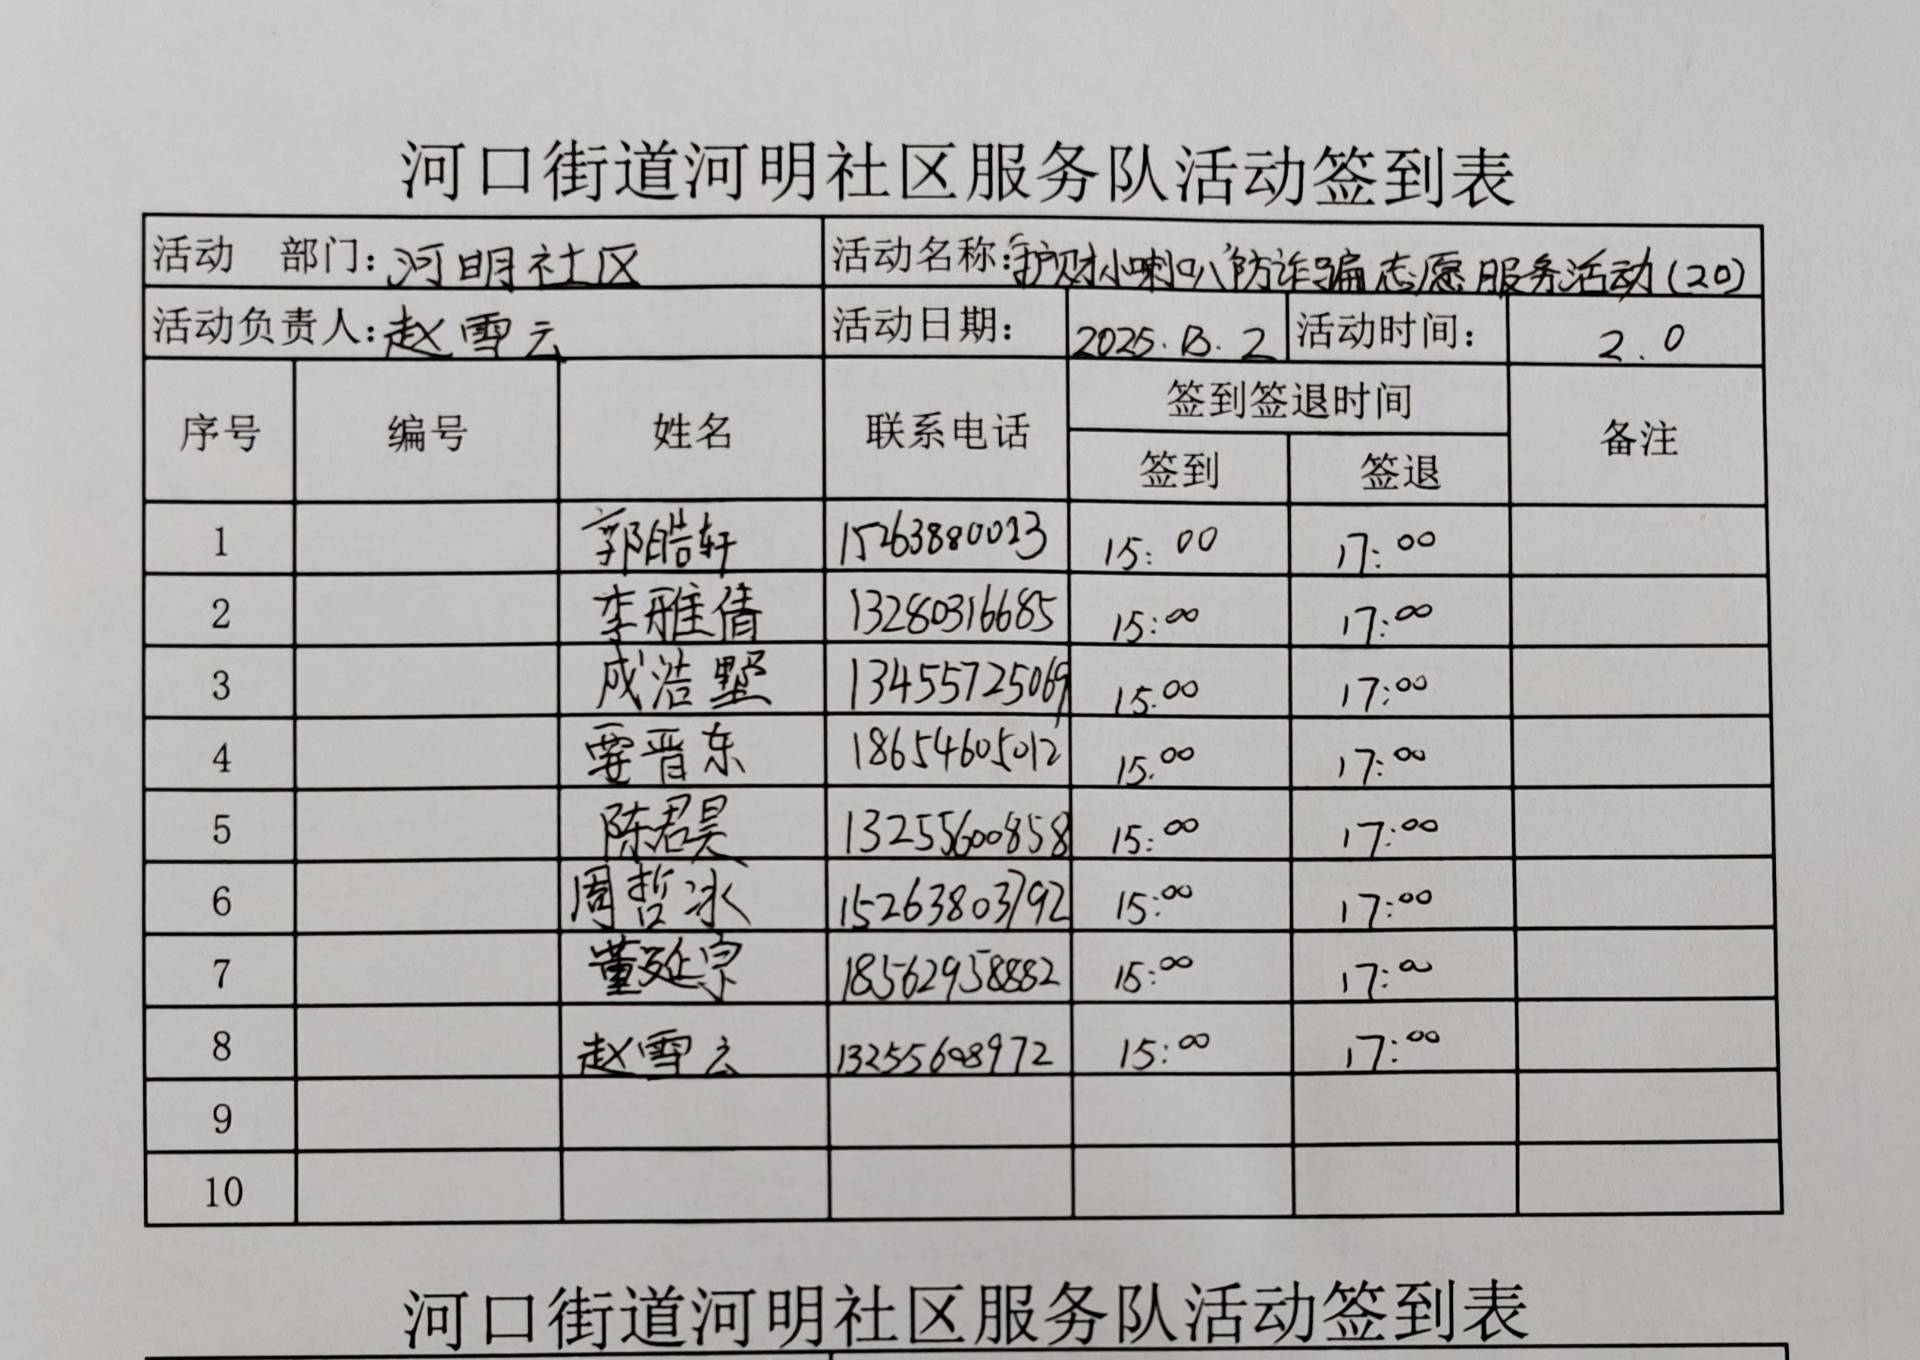 河口街道河明社区服务队活动签到表
活动 部门：河明社区 活动名称：“护财小喇叭”防诈骗志愿服务活动(20)
活动负责人：赵雪云 活动日期： 2025. 2 活动时间： 2.0
序号 编号 姓名 联系电话 签到签退时间 备注
签到 签退
1 郭皓轩 15263880023 15:00 17:00
2 李雅倩 13280316685 15:00 17:00
3 成浩墅 13455725069 15:00 17:00
4 要晋东 18654605012 15:00 17:00
5 陈君昊 13255600858 15:00 17:00
6 周哲冰 15263803792 15:00 17:00
7 董延宗 18562958882 15:00 17:00
8 赵雪云 13255608972 15:00 17:00
9
10
河口街道河明社区服务队活动签到表